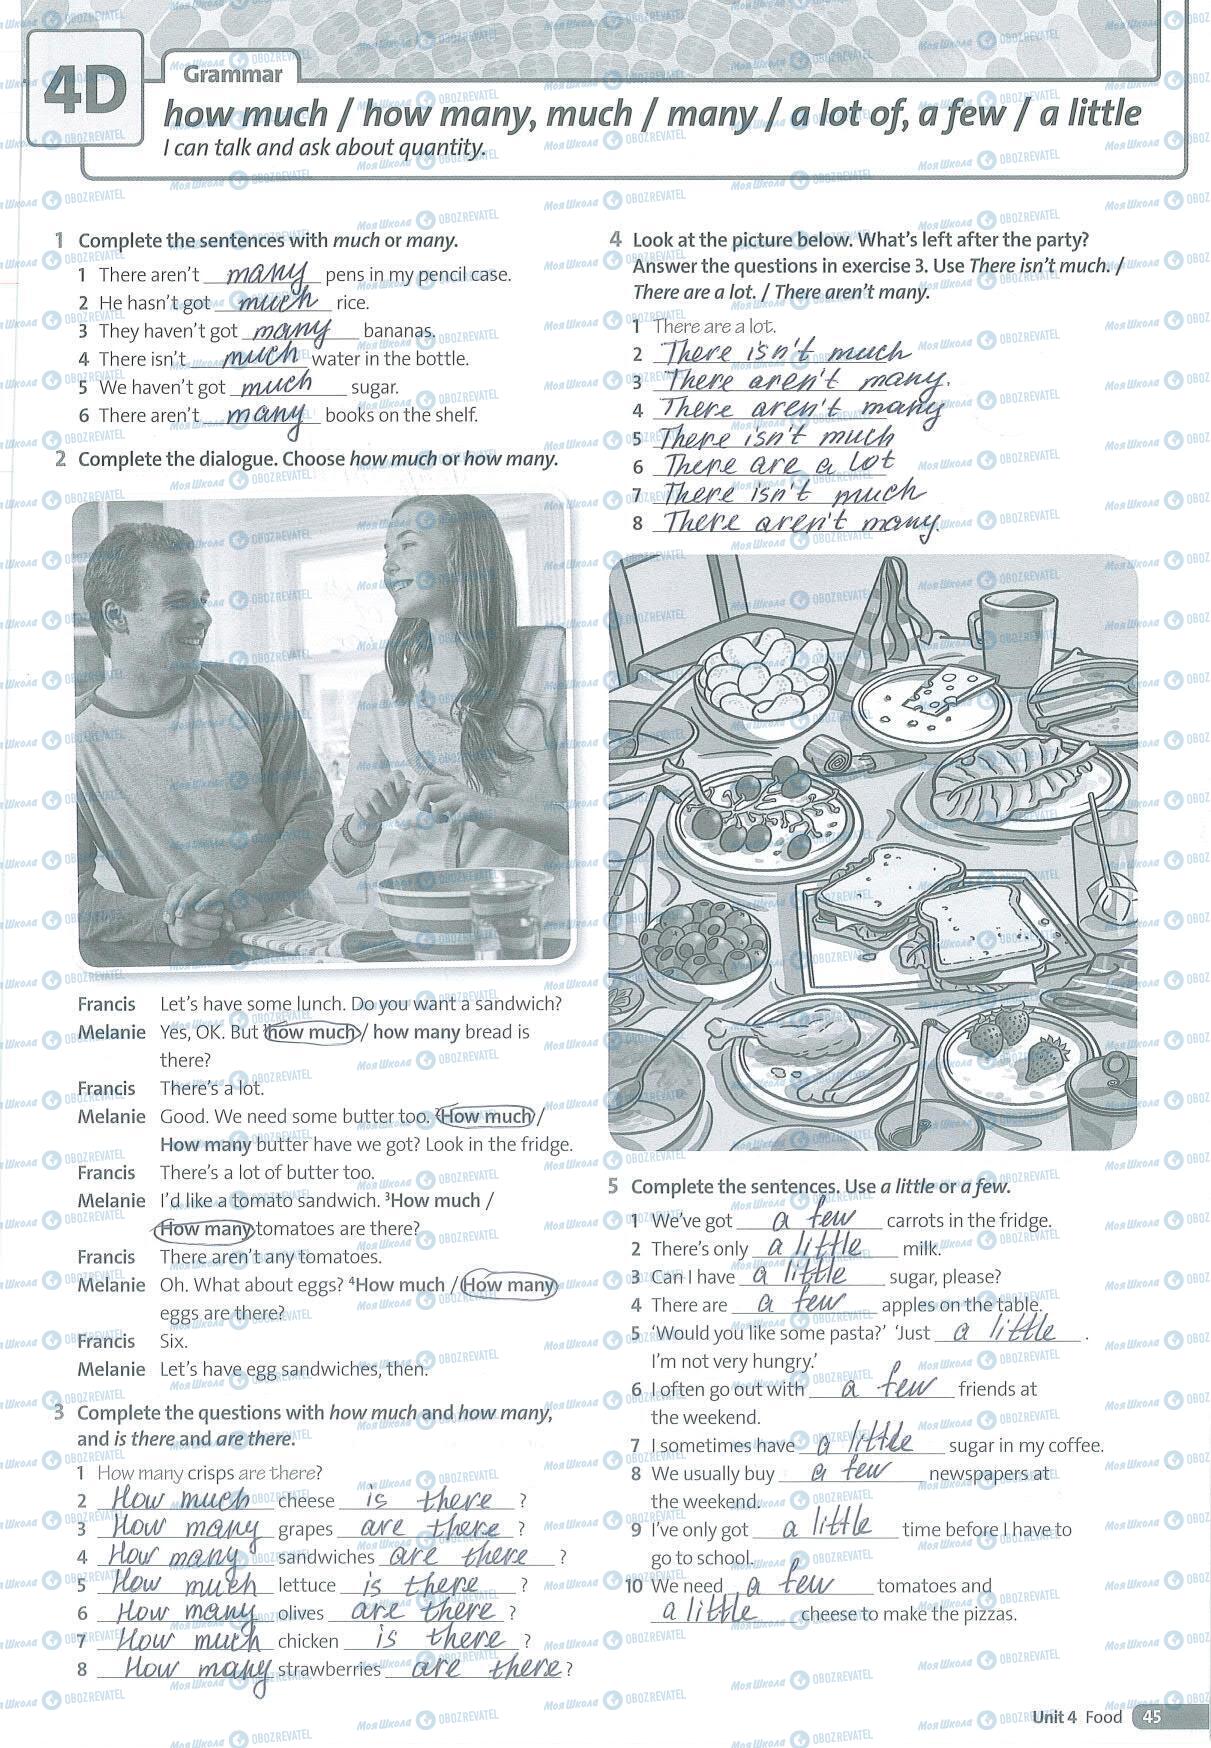 4D
Grammar
how much / how many, much / many / a lot of, a few / a little
I can talk and ask about quantity.
1 Complete the sentences with much or many.
1 There aren't many pens in my pencil case.
2 He hasn't got much rice.
3 They haven't got many bananas.
4 There isn't much water in the bottle.
5 We haven't got much sugar.
6 There aren't many books on the shelf.
2 Complete the dialogue. Choose how much or how many.
Francis Let's have some lunch. Do you want a sandwich?
Melanie Yes, OK. But ¹how much / how many bread is
there?
Francis There's a lot.
Melanie Good. We need some butter too. ²How much /
How many butter have we got? Look in the fridge.
Francis There's a lot of butter too.
Melanie I'd like a tomato sandwich. ³How much /
How many tomatoes are there?
Francis There aren't any tomatoes.
Melanie Oh. What about eggs? ⁴How much / How many
eggs are there?
Francis Six.
Melanie Let's have egg sandwiches, then.
3 Complete the questions with how much and how many,
and is there and are there.
1 How many crisps are there?
2 How much cheese is there ?
3 How many grapes are there ?
4 How many sandwiches are there ?
5 How much lettuce is there ?
6 How many olives are there ?
7 How much chicken is there ?
8 How many strawberries are there ?
4 Look at the picture below. What's left after the party?
Answer the questions in exercise 3. Use There isn't much. /
There are a lot. / There aren't many.
1 There are a lot.
2 There isn't much
3 There aren't many.
4 There aren't many
5 There isn't much
6 There are a lot
7 There isn't much
8 There aren't many.
5 Complete the sentences. Use a little or a few.
1 We've got a few carrots in the fridge.
2 There's only a little milk.
3 Can I have a little sugar, please?
4 There are a few apples on the table.
5 'Would you like some pasta?' 'Just a little .
I'm not very hungry.'
6 I often go out with a few friends at
the weekend.
7 I sometimes have a little sugar in my coffee.
8 We usually buy a few newspapers at
the weekend.
9 I've only got a little time before I have to
go to school.
10 We need a few tomatoes and
a little cheese to make the pizzas.
Unit 4 Food 45
Моя Школа OBOZREVATEL